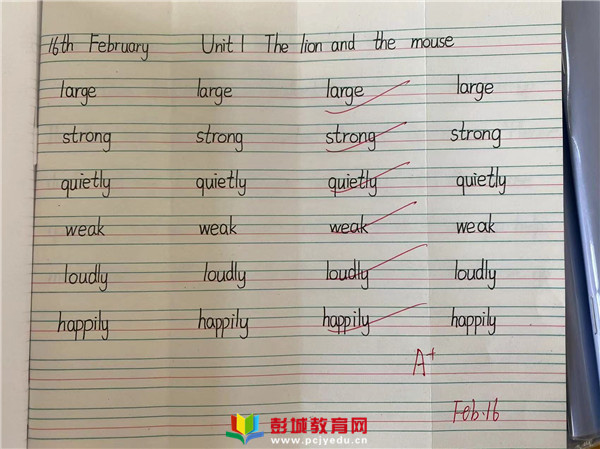 16th February Unit 1 The lion and the mouse
large large large large
strong strong strong strong
quietly quietly quietly quietly
weak weak weak weak
loudly loudly loudly loudly
happily happily happily happily
A+
Feb.16
彭城教育网
www.pcjyedu.cn